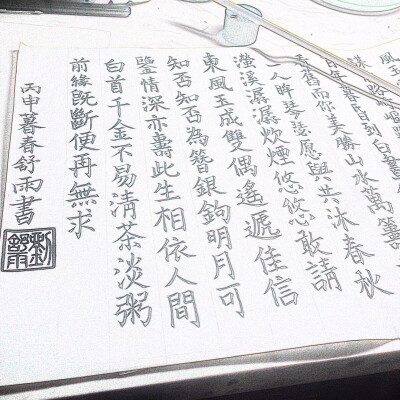 風
舊而你美勝山水萬籌
一人眸琴瑟愿與共沐春秋
瀠溪潺潺炊煙悠悠敢請
東風玉成雙偶遙遞佳信
知否知否為簪銀鉤明月可
鑒情深亦壽此生相依人間
白首千金不易清茶淡粥
前緣既斷便再無求
丙申暮春舒雨書